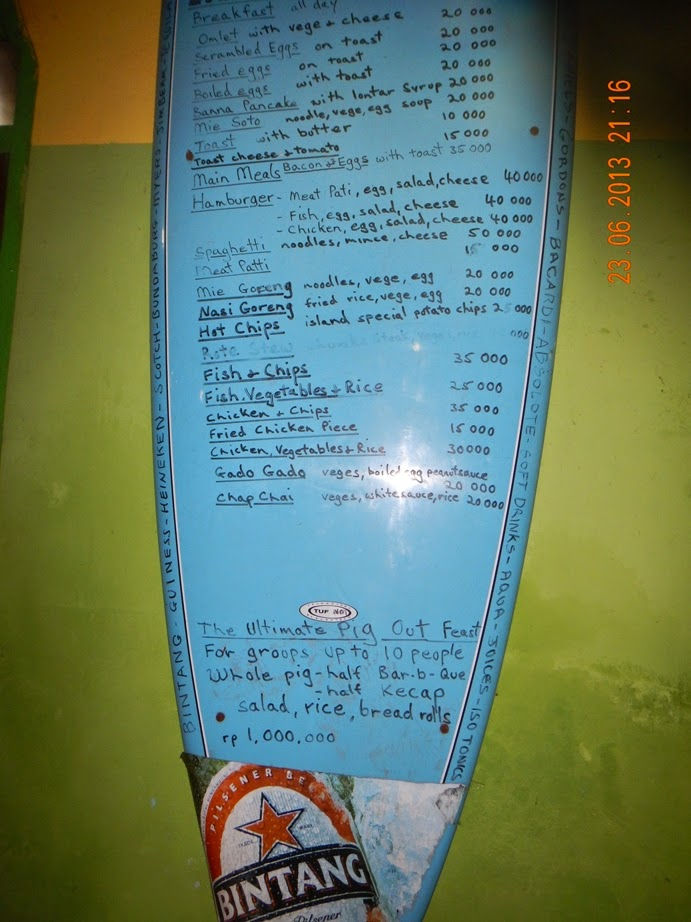 Breakfast all day
Omlet with vege & cheese 20 000
Scrambled Eggs on toast 20 000
Fried eggs on toast 20 000
Boiled eggs with toast 20 000
Banna Pancake with lontar syrup 20 000
Mie Soto noodle, vege, egg soup 20 000
Toast with butter 10 000
Toast cheese & tomato 15 000
Main Meals Bacon & Eggs with toast 35 000
Hamburger - Meat Pati, egg, salad, cheese 40 000
- Fish, egg, salad, cheese 40 000
- Chicken, egg, salad, cheese 40 000
Spaghetti noodles, mince, cheese 50 000
Meat Patti 15 000
Mie Goreng noodles, vege, egg 20 000
Nasi Goreng fried rice, vege, egg 20 000
Hot Chips island special potato chips 25 000
Rote Stew chunks steak, vege, rice 000
Fish & Chips 35 000
Fish, Vegetables & Rice 25 000
Chicken & Chips 35 000
Fried Chicken Piece 15 000
Chicken, Vegetables & Rice 30 000
Gado Gado veges, boiled egg peanut sauce
20 000
Chap Chai veges, white sauce, rice 20 000
TUF
The Ultimate Pig Out Feast
For groops up to 10 people
Whole pig - half Bar-b-Que
- half Kecap
salad, rice, bread rolls
rp 1,000.000
BINTANG - GUINESS - HEINEKEN - SCOTCH - BUNDABURG - MYERS - JIM BEAM -
GORDONS - BACARDI - ABSOLOTE - SOFT DRINKS - AQUA - JUICES - ISO TONICS
PILSENER BE
BINTANG
Pilsener
23.06.2013 21:16